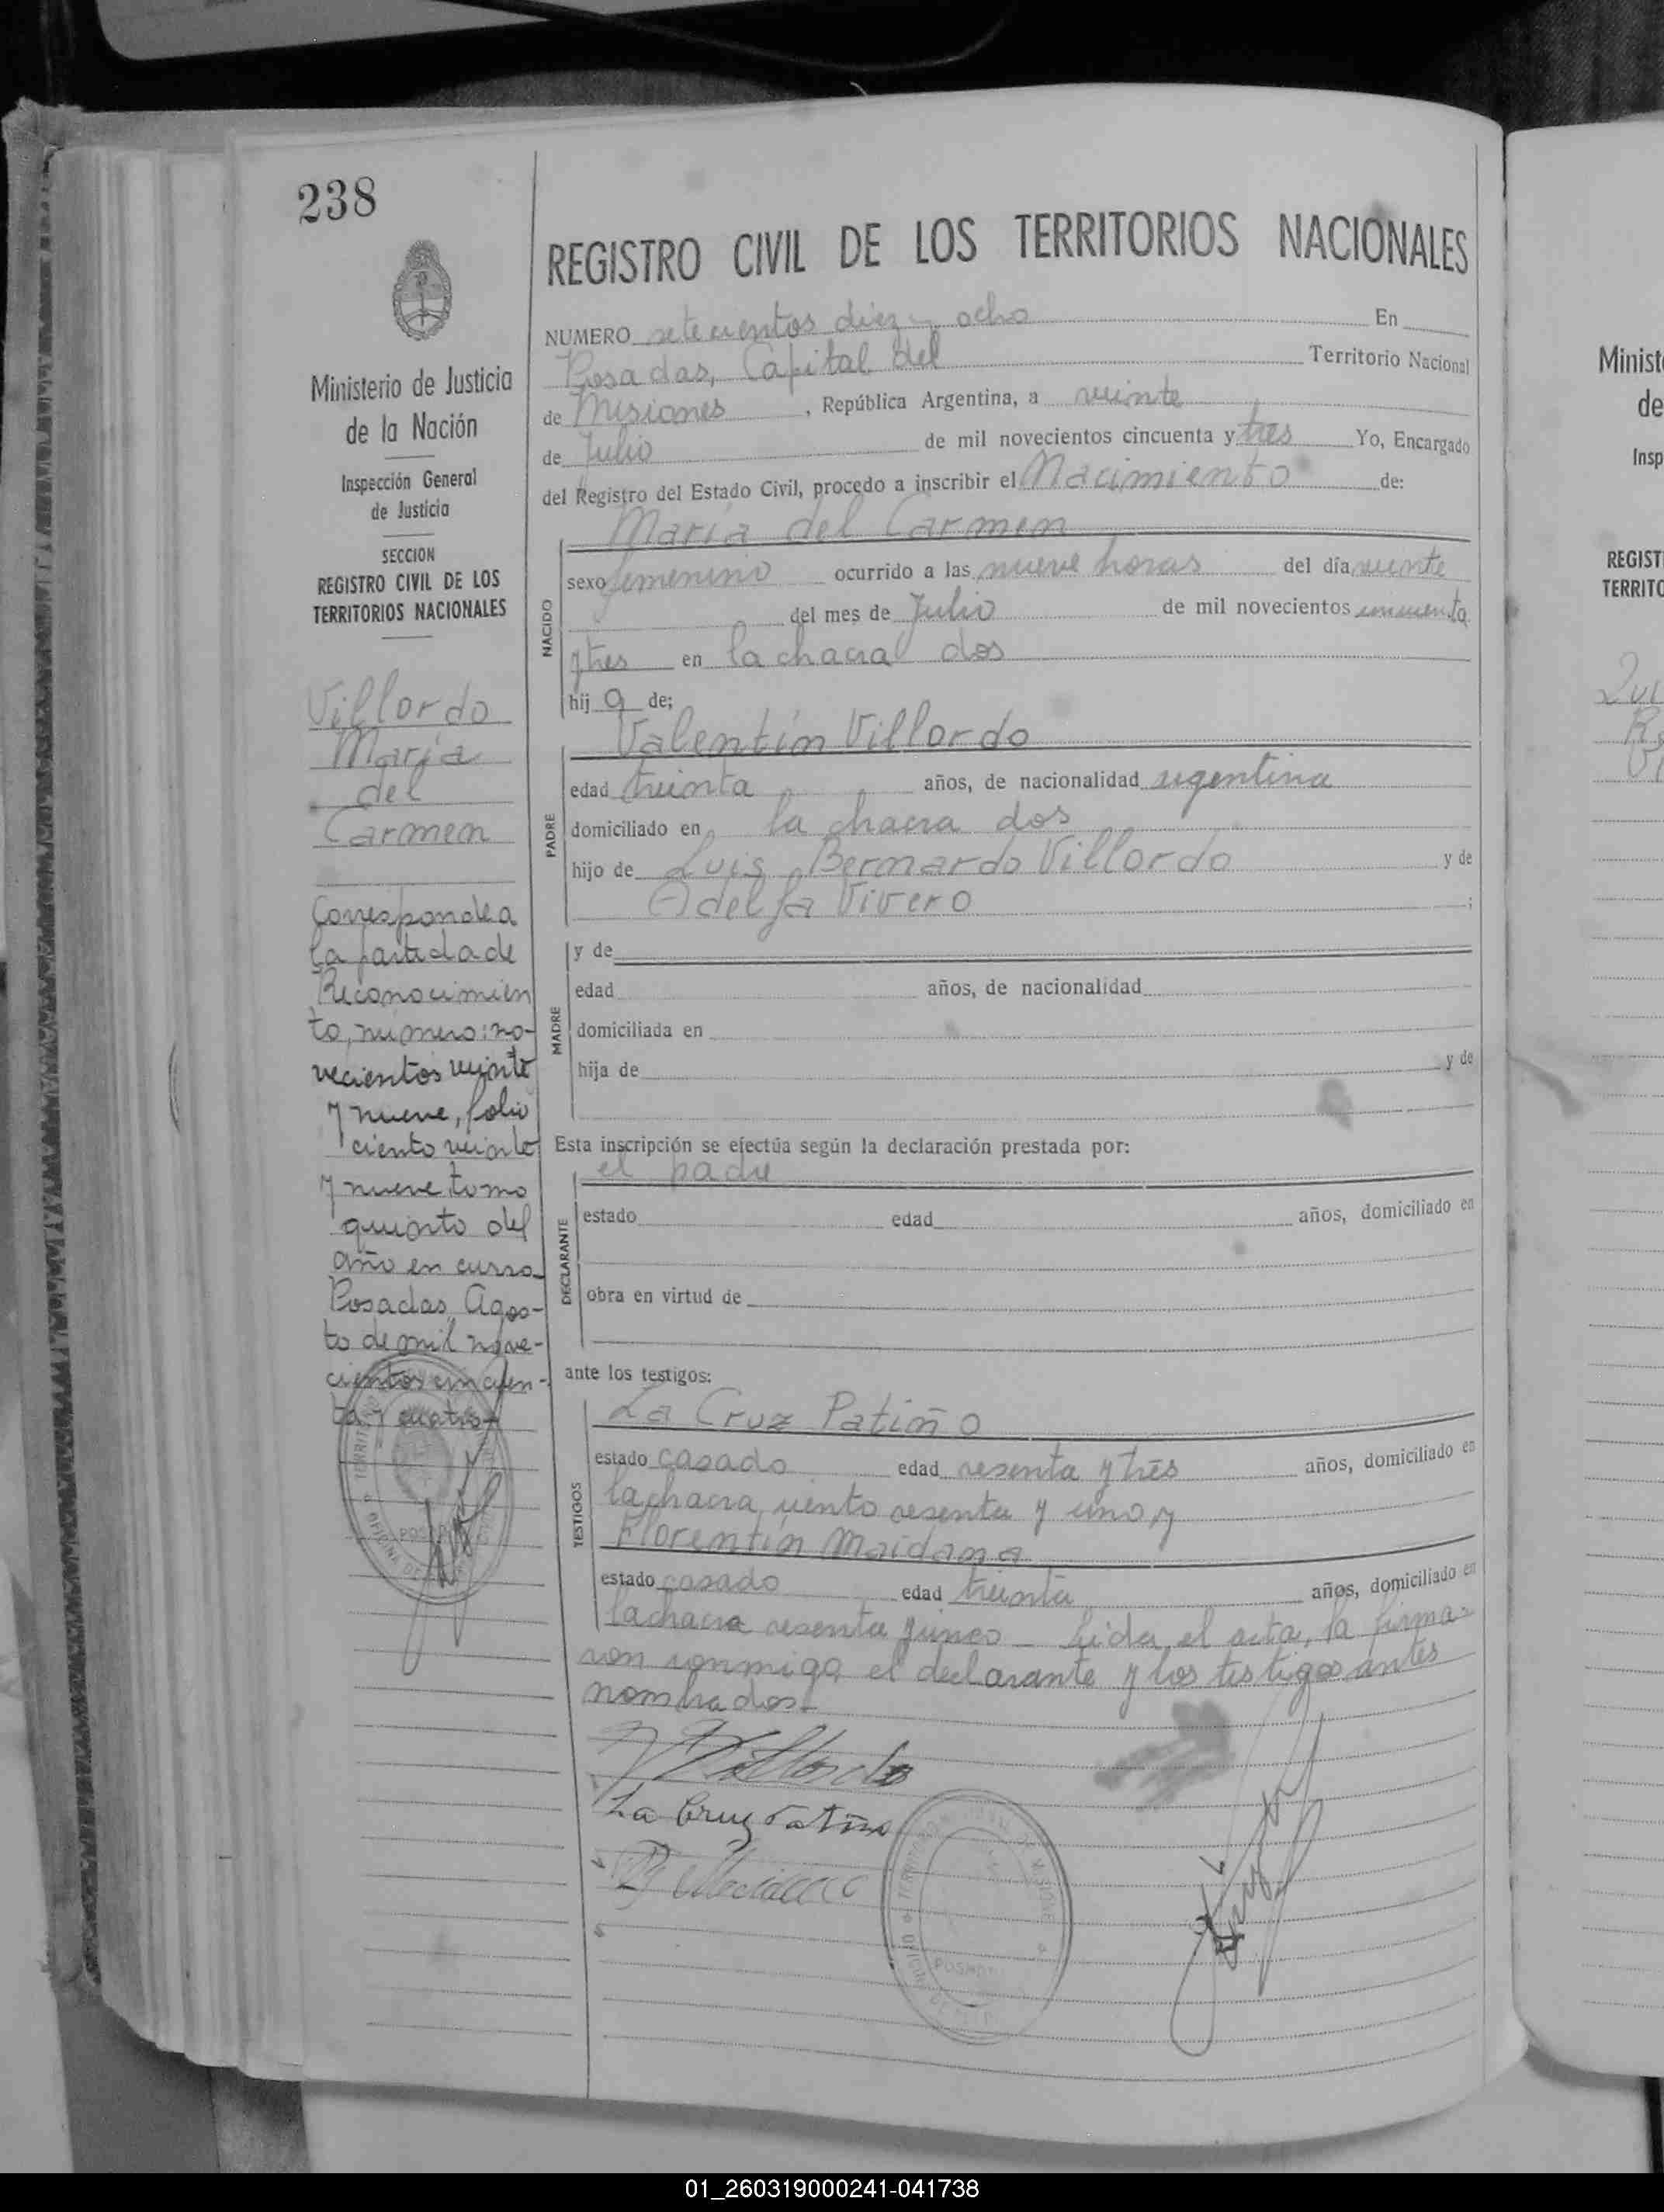 238
REGISTRO CIVIL DE LOS TERRITORIOS NACIONALES
Ministerio de Justicia
de la Nación
Inspección General
de Justicia
SECCION
REGISTRO CIVIL DE LOS
TERRITORIOS NACIONALES
Villordo
María
del
Carmen
Corresponde a
la partida de
Reconocimien
to, número: no-
vecientos veinte
y nueve, folio
ciento veinte
y nueve tomo
quinto del
año en curso
Posadas, Agos-
to de mil nove-
cientos cincuen-
ta y cuatro
NUMERO setecientos diez y ocho En
Posadas, Capital del Territorio Nacional
de Misiones, República Argentina, a veinte
de Julio de mil novecientos cincuenta y tres Yo, Encargado
del Registro del Estado Civil, procedo a inscribir el Nacimiento de:
María del Carmen
NACIDO
sexo femenino ocurrido a las nueve horas del día veinte
del mes de Julio de mil novecientos cincuenta
y tres en la chacra dos
hij a de;
Valentín Villordo
PADRE
edad treinta años, de nacionalidad argentina
domiciliado en la chacra dos
hijo de Luis Bernardo Villordo y de
Adelfa Vivero ;
MADRE
y de
edad años, de nacionalidad
domiciliada en
hija de y de
Esta inscripción se efectúa según la declaración prestada por:
el padre
DECLARANTE
estado edad años, domiciliado en
obra en virtud de
ante los testigos:
TESTIGOS
La Cruz Patiño
estado casado edad sesenta y tres años, domiciliado en
la chacra ciento sesenta y uno y
Florentín Maidana
estado casado edad treinta años, domiciliado en
la chacra sesenta y cinco - Leída el acta, la firma-
ron conmigo, el declarante y los testigos antes
nombrados.
V Villordo
La Cruz Patiño
Maidana
POSADAS
Minist
de
Insp
REGIST
TERRITO
01_260319000241-041738